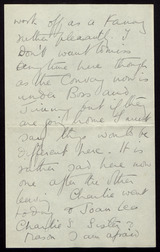 work off as a Fanny
rather pleasant. I
Don't want
any time here though
as the Convoy now is
under Boss and
Jimmy but if they
are gone home I must
say they would be
different here. It is
rather sad here now
one after the other
leaving. Charlie went
today & Joan Lea
Charlie's Sister?
I am afraid